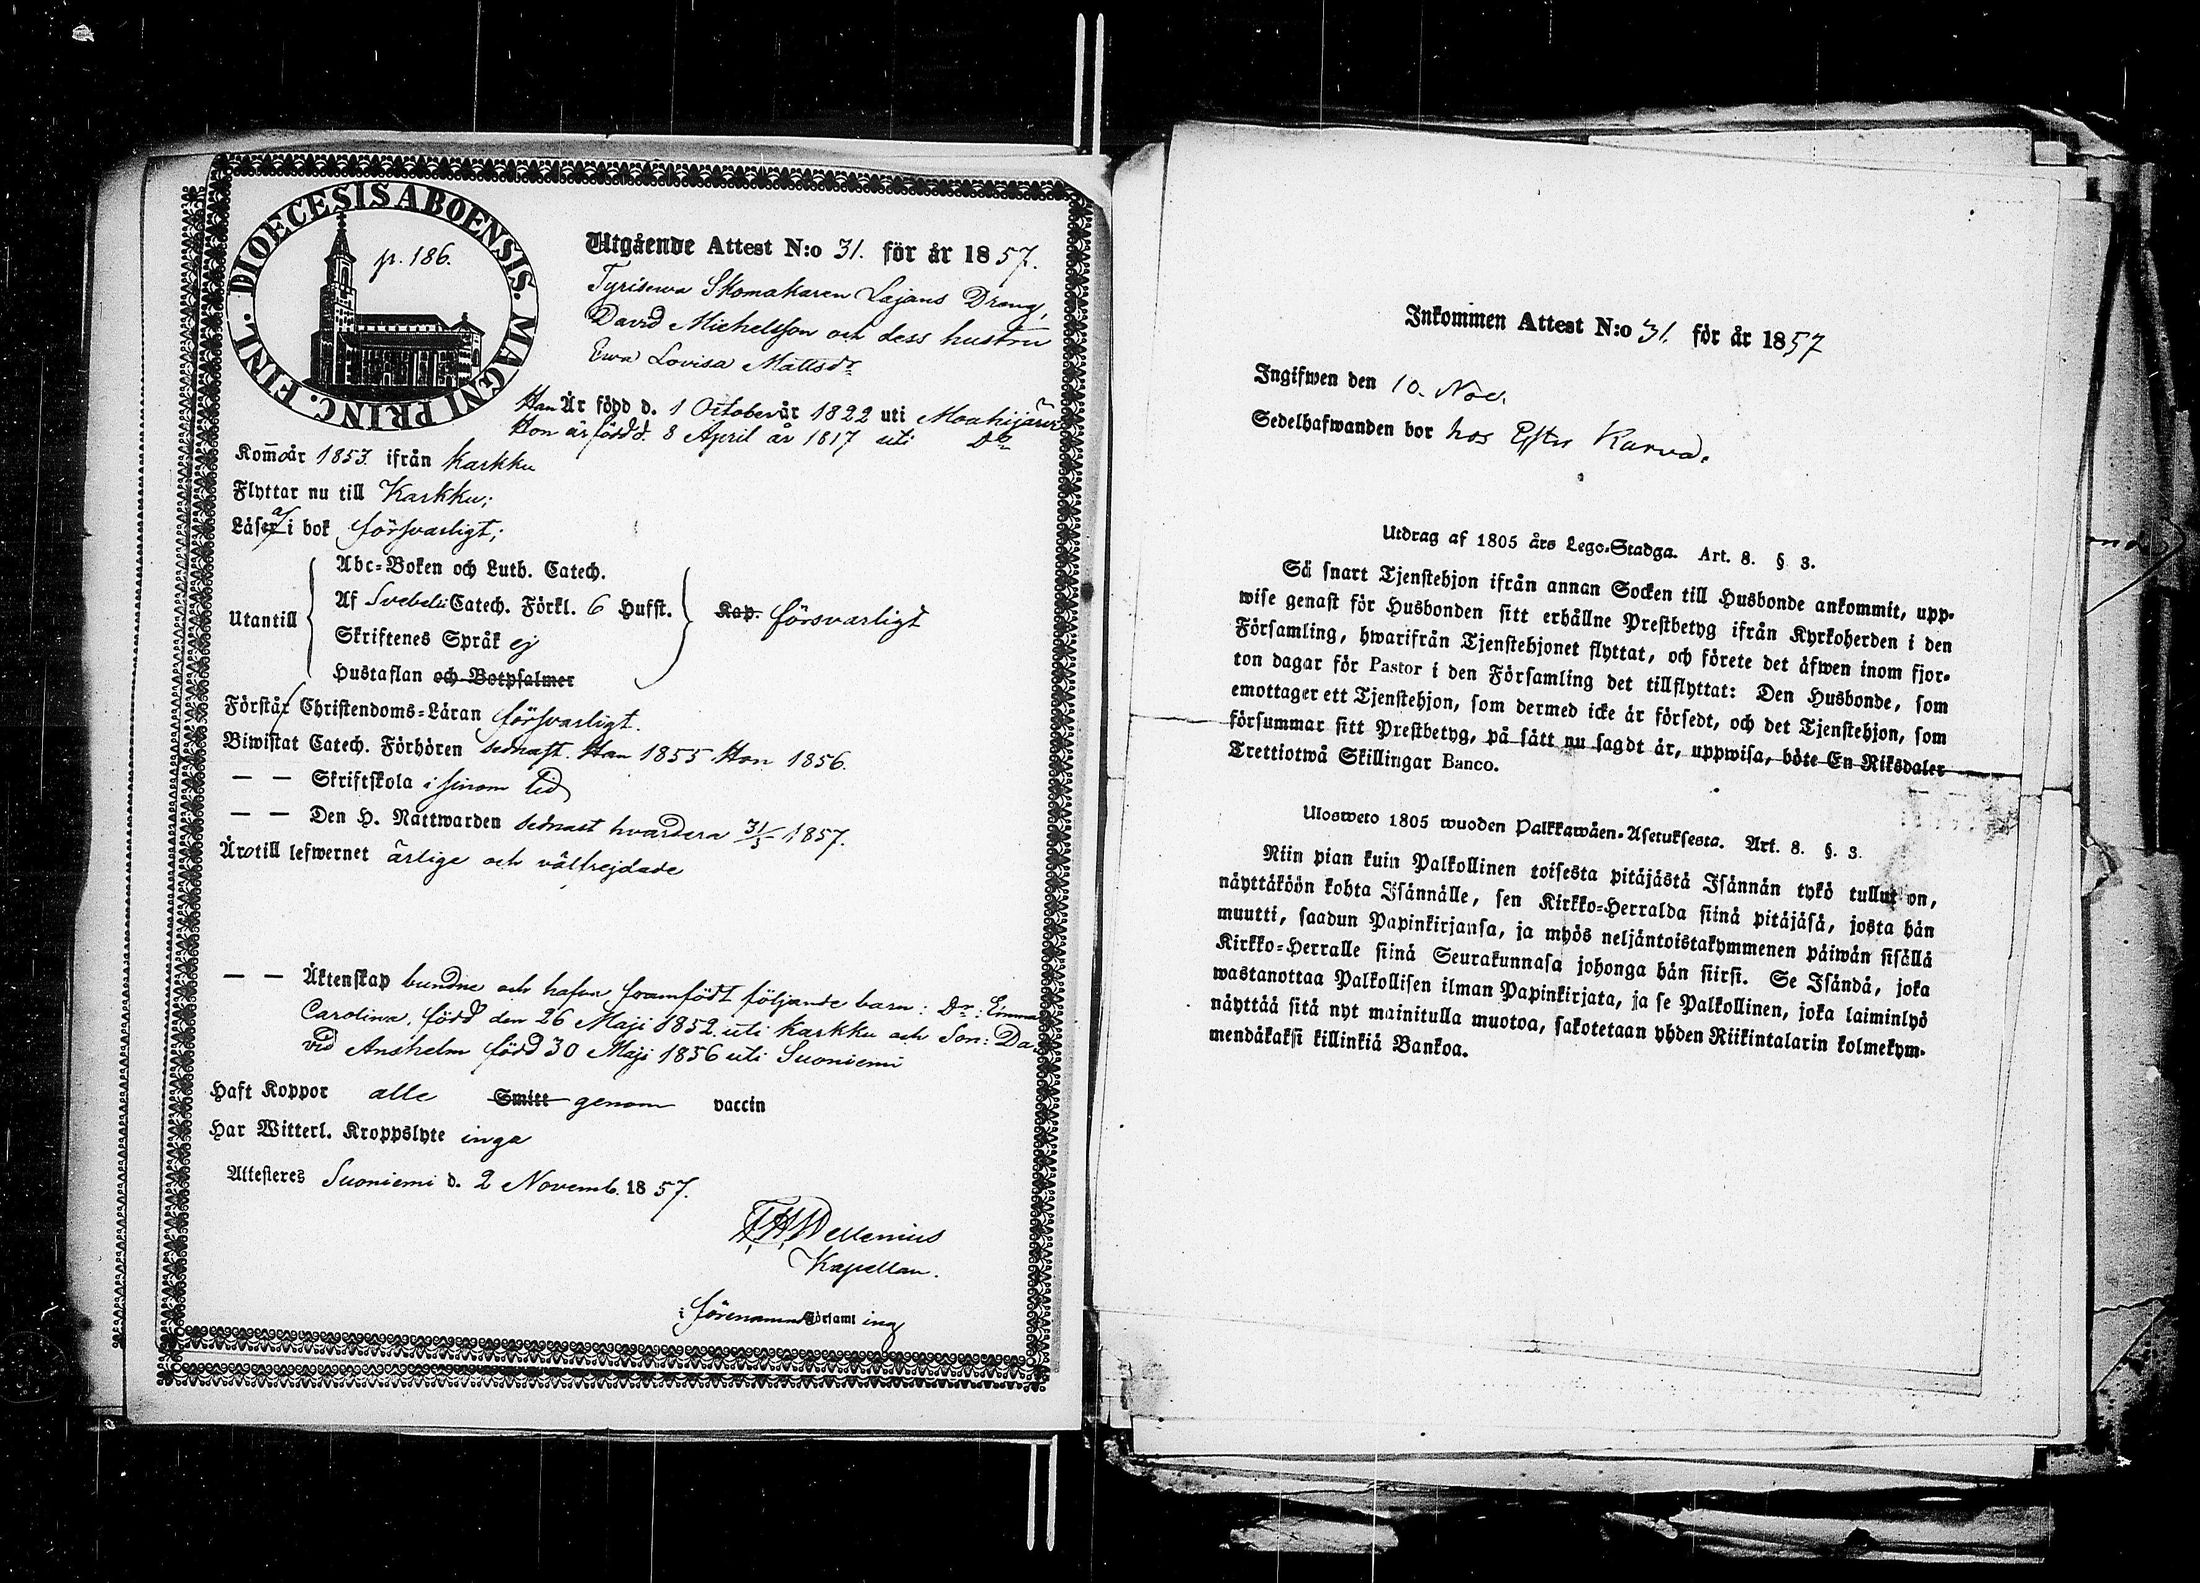 DIOECESIS ABOENSIS. MAGNI PRINC. FINL.
p. 186.
Utgående Attest N:o 31. för år 1857.
Tyrisewa Skomakaren Lajans Dräng,
David Michelsson och dess hustru
Ewa Lovisa Mattsdr
Han Är född d. 1 October år 1822 uti Mouhijärvi
Hon är född d. 8 April år 1817 uti Do
Kommo år 1853 ifrån Karkku
Flyttar nu till Karkku;
Läsa i bok försvarligt;
Utantill
Abc-Boken och Luth. Catech.
Af Svebelii Catech. Förkl. 6 Hufst.
Skriftenes Språk ej
Hustaflan och Botpsalmer
Kap. försvarligt
Förstå Christendoms-Läran försvarligt.
Biwistat Catech. Förhören sednast. Han 1855 Hon 1856.
— — Skriftskola i sinom tid
— — Den H. Nattwarden sednast hvardera 31/5 1857.
Äro till lefwernet ärlige och välfrejdade
— — Äktenskap bundne och hafva framfödt följande barn: Dr: Emma
Carolina, född den 26 Maji 1852 uti Karkku och Son: Da-
vid Anshelm född 30 Maji 1856 uti Suoniemi
Haft Koppor alle Smitt genom vaccin
Har Witterl. Kroppslyte inga
Attesteres Suoniemi d. 2 Novemb. 1857.
Kapellan.
i förenämnd Församl ing
Inkommen Attest N:o 31. för år 1857
Ingifwen den 10. Nov.
Sedelhafwanden bor hos Karva.
Utdrag af 1805 års Lego-Stadga. Art. 8. § 3.
Så snart Tjenstehjon ifrån annan Socken till Husbonde ankommit, upp-
wise genast för Husbonden sitt erhållne Prestbetyg ifrån Kyrkoherden i den
Församling, hwarifrån Tjenstehjonet flyttat, och förete det äfwen inom fjor-
ton dagar för Pastor i den Församling det tillflyttat: Den Husbonde, som
emottager ett Tjenstehjon, som dermed icke är försedt, och det Tjenstehjon, som
försummar sitt Prestbetyg, på sätt nu sagdt är, uppwisa, böte En Riksdaler
Trettiotwå Skillingar Banco.
Ulosweto 1805 wuoden Palkkawäen-Asetuksesta. Art. 8. §. 3.
Niin pian kuin Palkollinen toisesta pitäjästä Isännän tykö tullut on,
näyttäköön kohta Isännälle, sen Kirkko-Herralda siinä pitäjäsä, josta hän
muutti, saadun Papinkirjansa, ja myös neljäntoistakymmenen päiwän sisällä
Kirkko-Herralle siinä Seurakunnasa johonga hän siirsi. Se Isändä, joka
wastanottaa Palkollisen ilman Papinkirjata, ja se Palkollinen, joka laiminlyö
näyttää sitä nyt mainitulla muotoa, sakotetaan yhden Riikintalarin kolmekym-
mendäkaksi killinkiä Bankoa.